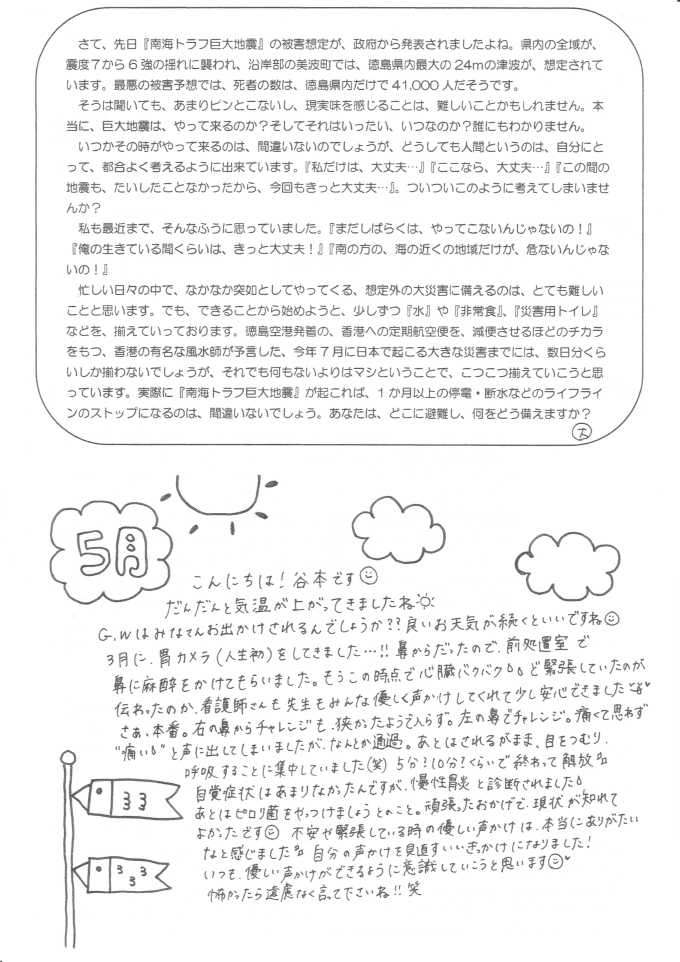 さて、先日『南海トラフ巨大地震』の被害想定が、政府から発表されましたよね。県内の全域が、
震度７から６強の揺れに襲われ、沿岸部の美波町では、徳島県内最大の２４ｍの津波が、想定されて
います。最悪の被害予想では、死者の数は、徳島県内だけで 41,000 人だそうです。
そうは聞いても、あまりピンとこないし、現実味を感じることは、難しいことかもしれません。本
当に、巨大地震は、やって来るのか？そしてそれはいったい、いつなのか？誰にもわかりません。
いつかその時がやって来るのは、間違いないのでしょうが、どうしても人間というのは、自分にと
って、都合よく考えるように出来ています。『私だけは、大丈夫…』『ここなら、大丈夫…』『この間の
地震も、たいしたことなかったから、今回もきっと大丈夫…』。ついついこのように考えてしまいませ
んか？
私も最近まで、そんなふうに思っていました。『まだしばらくは、やってこないんじゃないの！』
『俺の生きている間くらいは、きっと大丈夫！』『南の方の、海の近くの地域だけが、危ないんじゃな
いの！』
忙しい日々の中で、なかなか突如としてやってくる、想定外の大災害に備えるのは、とても難しい
ことと思います。でも、できることから始めようと、少しずつ『水』や『非常食』、『災害用トイレ』
などを、揃えていっております。徳島空港発着の、香港への定期航空便を、減便させるほどのチカラ
をもつ、香港の有名な風水師が予言した、今年７月に日本で起こる大きな災害までには、数日分くら
いしか揃わないでしょうが、それでも何もないよりはマシということで、こつこつ揃えていこうと思
っています。実際に『南海トラフ巨大地震』が起これば、１か月以上の停電・断水などのライフライ
ンのストップになるのは、間違いないでしょう。あなたは、どこに避難し、何をどう備えますか？
5月
こんにちは！谷本です☺
だんだんと気温が上がってきましたね☼
G.Wはみなさんお出かけされるんでしょうか？？良いお天気が続くといいですね☺
3月に、胃カメラ(人生初)をしてきました…!!鼻からだったので、前処置室で
鼻に麻酔をかけてもらいました。もうこの時点で心臓バクバク。。ど緊張していたのが
伝わったのか、看護師さんも先生もみんな優しく声かけしてくれて少し安心できました
さぁ、本番。右の鼻からチャレンジも、狭かったようで入らず。左の鼻でチャレンジ。痛くて思わず
"痛い"と声に出してしまいましたが、なんとか通過。あとはされるがまま、目をつむり、
呼吸することに集中していました(笑) 5分?10分?くらいで終わって解放
自覚症状はあまりなかったんですが、慢性胃炎と診断されました
あとはピロリ菌をやっつけましょうとのこと。頑張ったおかげで、現状が知れて
よかったです☺ 不安や緊張している時の優しい声かけは、本当にありがたい
なと感じました 自分の声かけを見直すいいきっかけになりました！
いつも、優しい声かけができるように意識していこうと思います☺
怖かったら遠慮なく言って下さいね!! 笑